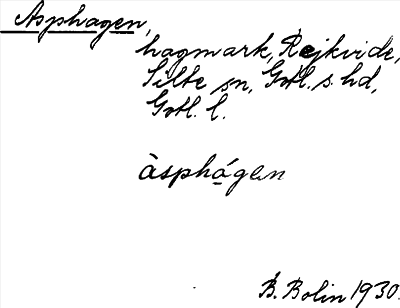 Asphagen,
hagmark, Rejkvide,
Silte sn, Gotl. s. hd,
Gotl. l.
àsphágen
B. Bolin 1930.